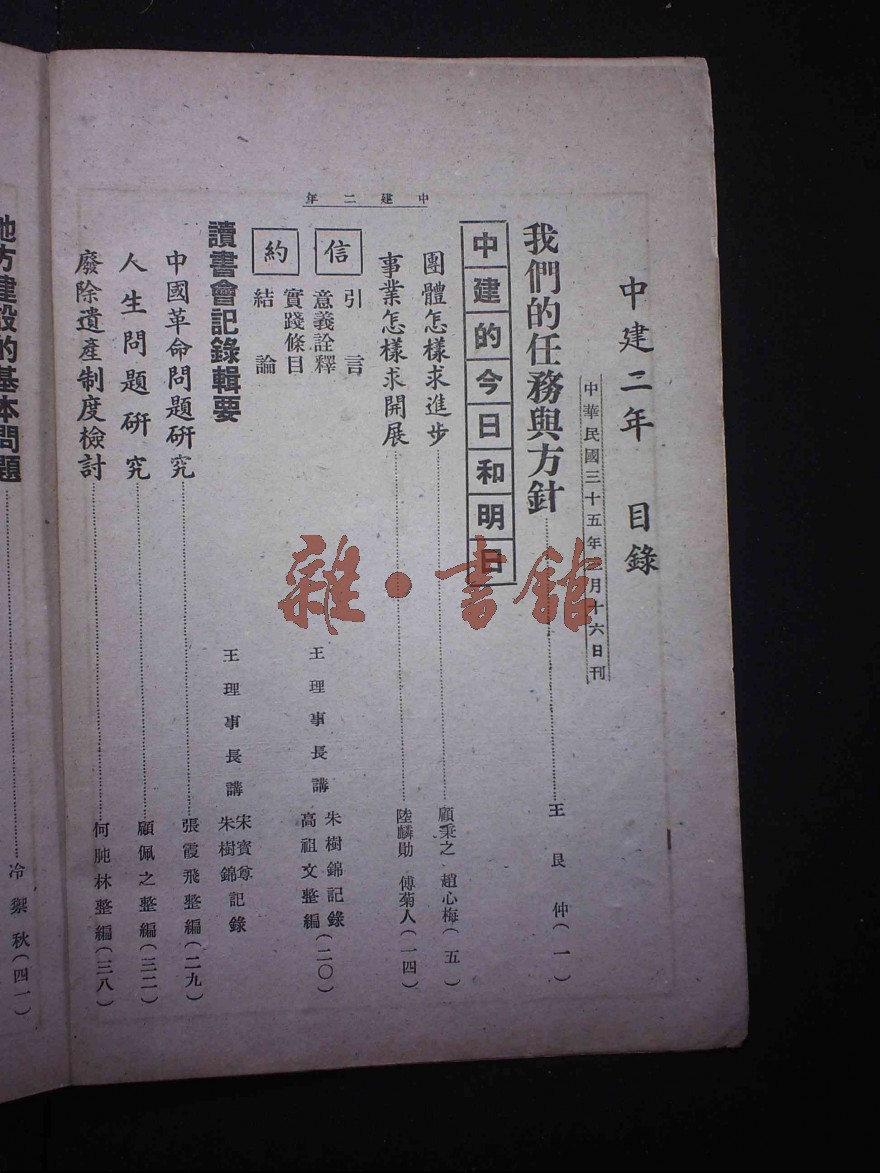 中建二年　目錄
中華民國三十五年　月十六日刊
我們的任務與方針……王艮仲（一）
中建的今日和明日
團體怎樣求進步……顧秉之　趙心梅（五）
事業怎樣求開展……陸麟勛　傅菊人（一四）
信約
引言
意義詮釋
實踐條目
結論
王理事長講
朱樹錦記錄
高祖文整編（二〇）
讀書會記錄輯要
王理事長講
宋寶尊記錄
朱樹錦
中國革命問題研究……張霞飛整編（二九）
人生問題研究……顧佩之整編（三二）
廢除遺產制度檢討……何　林整編（三八）
地方建設的基本問題……冷禦秋（四一）
中建二年
雜·書館